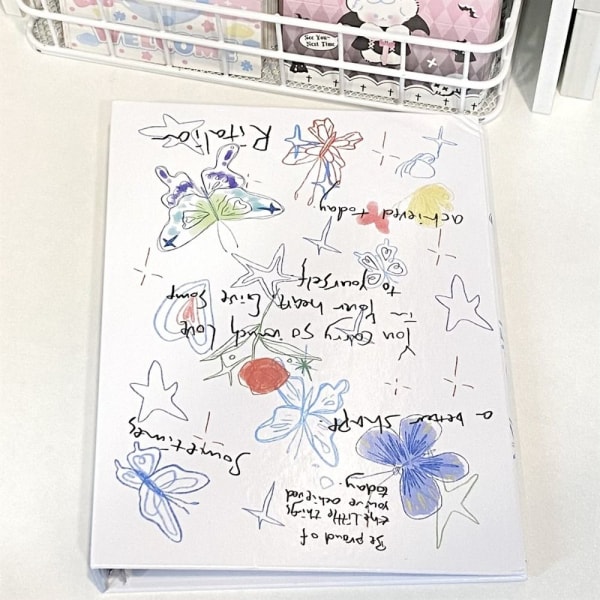 See You~
Next Time
Be proud of
the little things
you've achieved
today.
Sometimes
a better shape
You carry so much love
in
your heart. Give some
to yourself
achieved today.
Ritalia